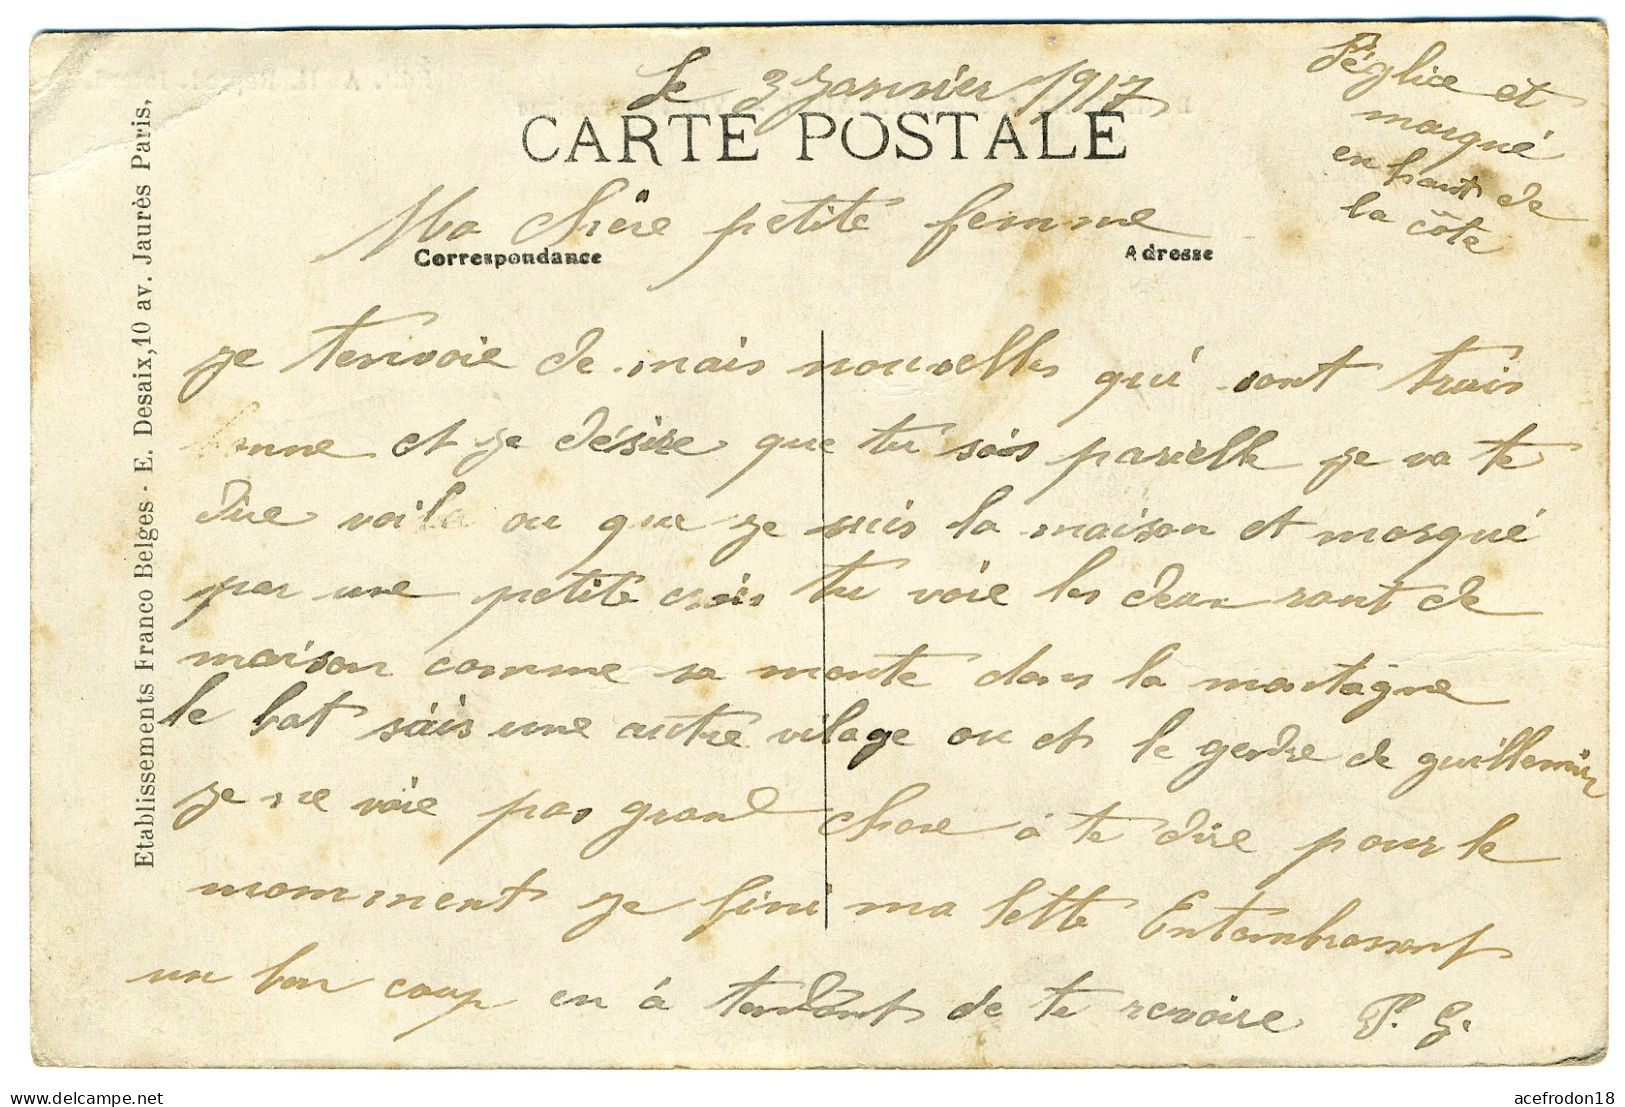 Le 3 Janvier 1917
l'église et
marqué
en haut de
la côte
CARTE POSTALE
Ma chère petite femme
Correspondance
Adresse
je tenvoie de mais nouvelles qui sont trais
bonne et je désire que tu sois parielle je va te
dire voila ou que je suis la maison et marqué
par une petite crois tu voie les deux rant de
maison comme sa monte dans la montagne
le bat sais une autre vilage ou et le gendre de guillemin
je ne voie pas grand chose à te dire pour le
momment je fini ma lette Entembrassant
un bon coup en à tendant de te revoire P. G.
Etablissements Franco Belges - E. Dessaix, 10 av. Jaurès Paris,
acefrodon18